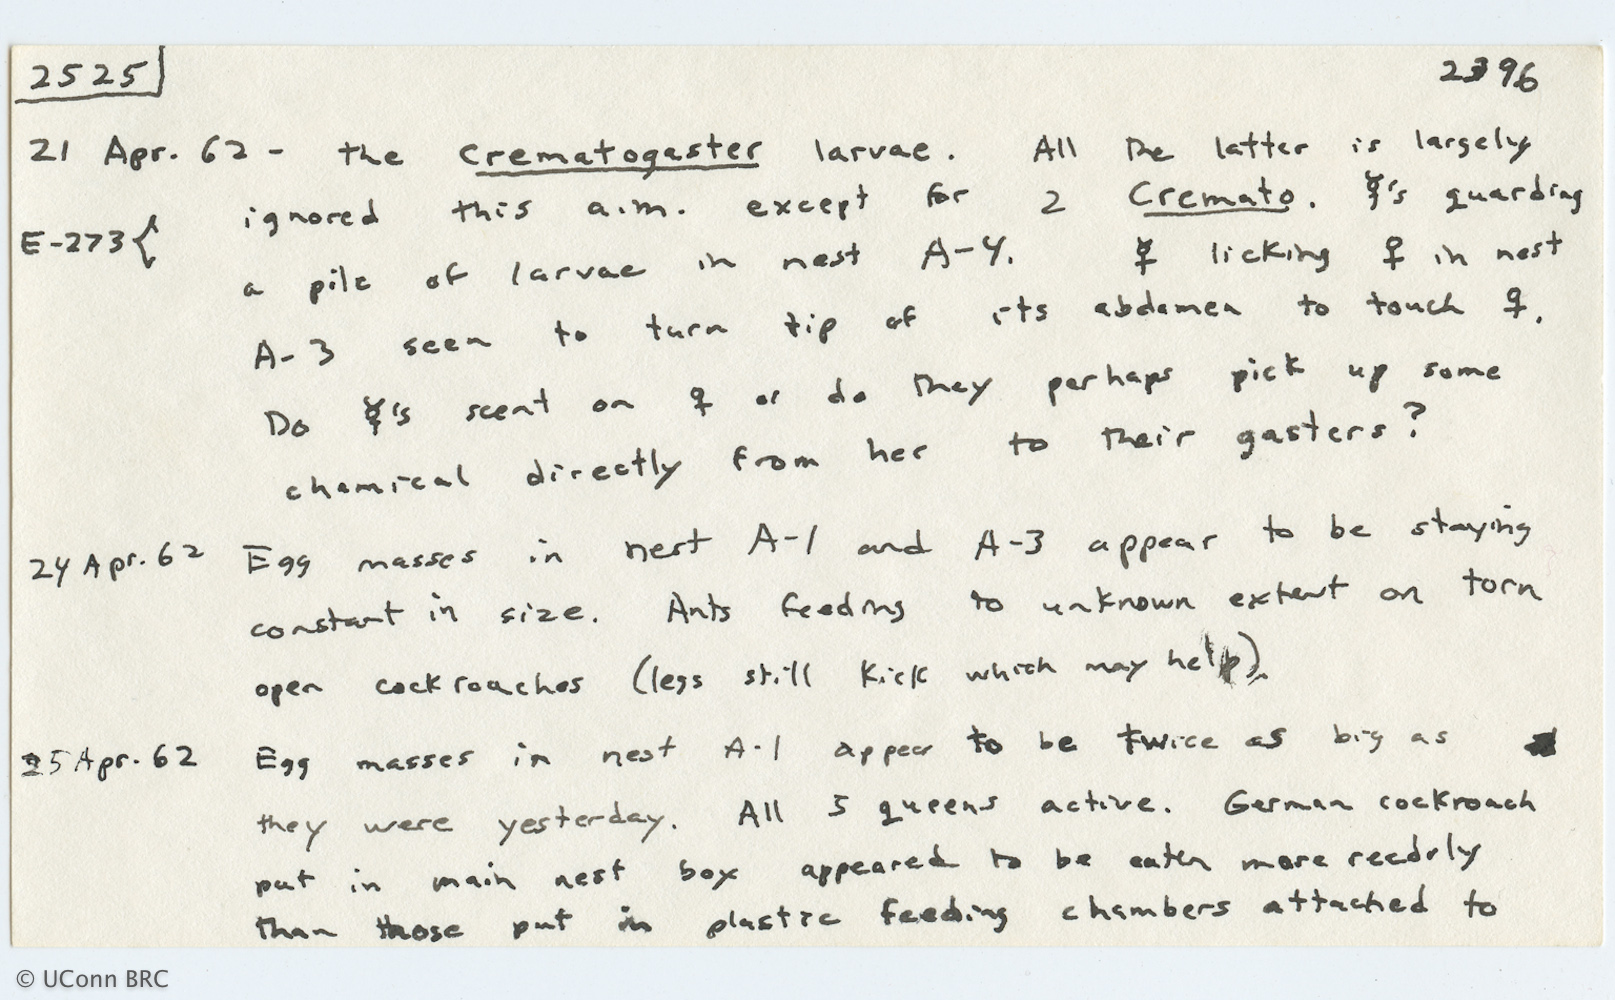 2525 2396
21 Apr. 62 - the Crematogaster larvae. All the latter is largely
ignored this a.m. except for 2 Cremato. ☿'s guarding
E-273{
a pile of larvae in nest A-4. ☿ licking ♀ in nest
A-3 seen to turn tip of its abdomen to touch ♀.
Do ☿'s scent on ♀ or do they perhaps pick up some
chemical directly from her to their gasters?
24 Apr. 62 Egg masses in nest A-1 and A-3 appear to be staying
constant in size. Ants feeding to unknown extent on torn
open cockroaches (legs still kick which may help).
25 Apr. 62 Egg masses in nest A-1 appear to be twice as big as
they were yesterday. All 5 queens active. German cockroach
put in main nest box appeared to be eaten more readily
than those put in plastic feeding chambers attached to
© UConn BRC